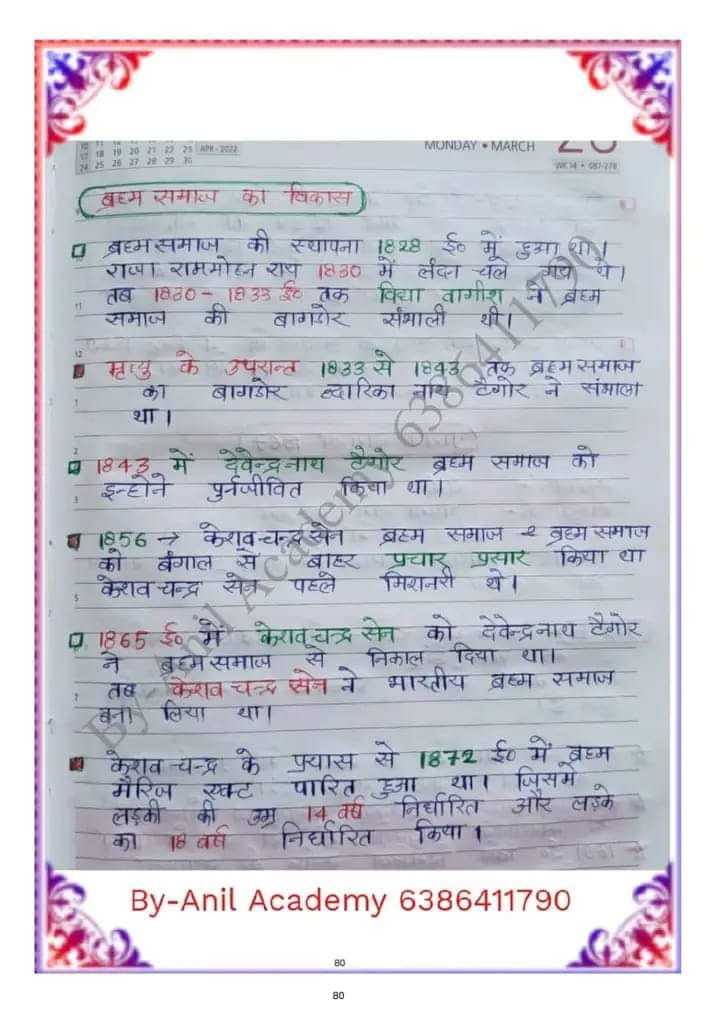 18 19 20 21 22 23 APR - 2022
24 25 26 27 28 29 30
MONDAY • MARCH
WK 14 • 087-278
ब्रह्म समाज का विकास
ब्रह्म समाज की स्थापना 1828 ई० में हुआ था।
राजा राममोहन राय 1830 में लंदन चले गये थे।
तब 1830 - 1833 ई० तक विद्या वागीश ने ब्रह्म
समाज की बागडोर संभाली थी।
मृत्यु के उपरान्त 1833 से 1843 तक ब्रह्म समाज
का बागडोर द्वारिका नाथ टैगोर ने संभाला
था।
1843 में देवेन्द्रनाथ टैगोर ब्रह्म समाज को
इन्होने पुर्नजीवित किया था।
1856 → केशव चन्द्र सेन ब्रह्म समाज ब्रह्म समाज
को बंगाल से बाहर प्रचार प्रसार किया था
केशव चन्द्र सेन पहले मिशनरी थे।
1865 ई० में केशव चन्द्र सेन को देवेन्द्रनाथ टैगोर
ने ब्रह्म समाज से निकाल दिया था।
तब केशव चन्द्र सेन ने भारतीय ब्रह्म समाज
बना लिया था।
केशव चन्द्र के प्रयास से 1872 ई० में ब्रह्म
मैरिज एक्ट पारित हुआ था। जिसमें
लड़की की उम्र 14 वर्ष निर्धारित और लड़के
का 18 वर्ष निर्धारित किया।
By-Anil Academy 6386411790
By-Anil Academy 6386411790
80
80